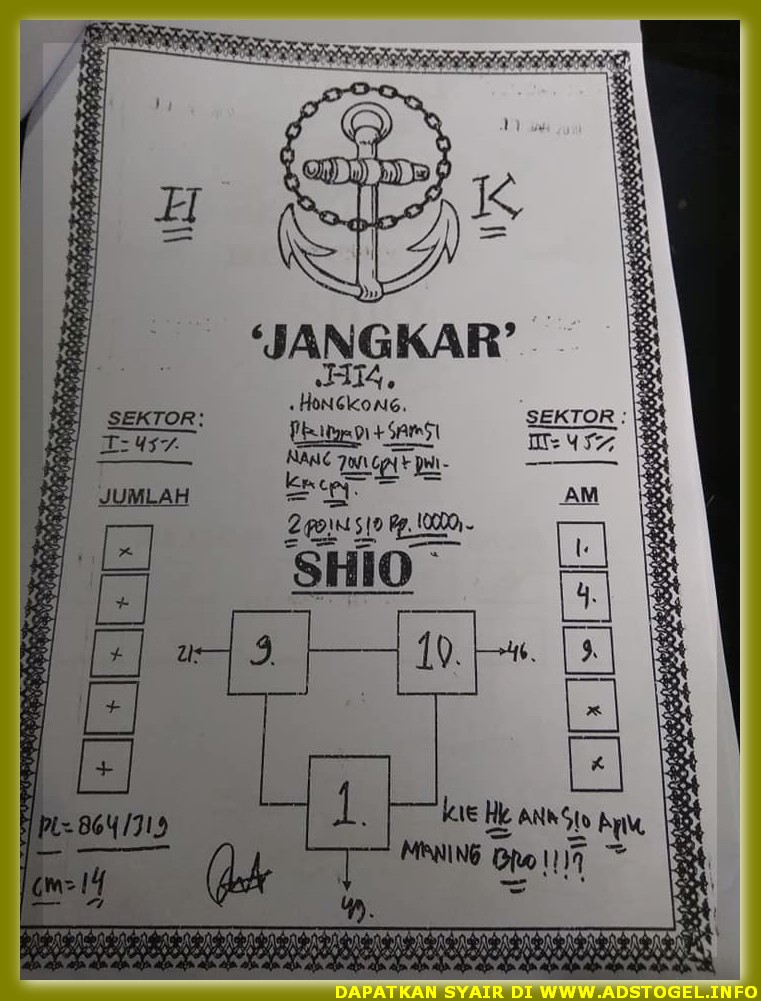 H K
'JANGKAR'
HONGKONG.
SEKTOR:
I=45%
SEKTOR :
III=45%
PRIBADI + SAMSI
NANG JOVI CPY + DWI-
KR CPY.
2 POIN SIO Rp. 10000,-
JUMLAH
AM
x
+
+
+
+
1.
4.
9.
x
x
SHIO
21. 9. 10. 46.
1.
49.
PL= 864/319
CM= 14
KIE HK ANA SIO APIK
MANING BRO!!!?
DAPATKAN SYAIR DI WWW.ADSTOGEL.INFO